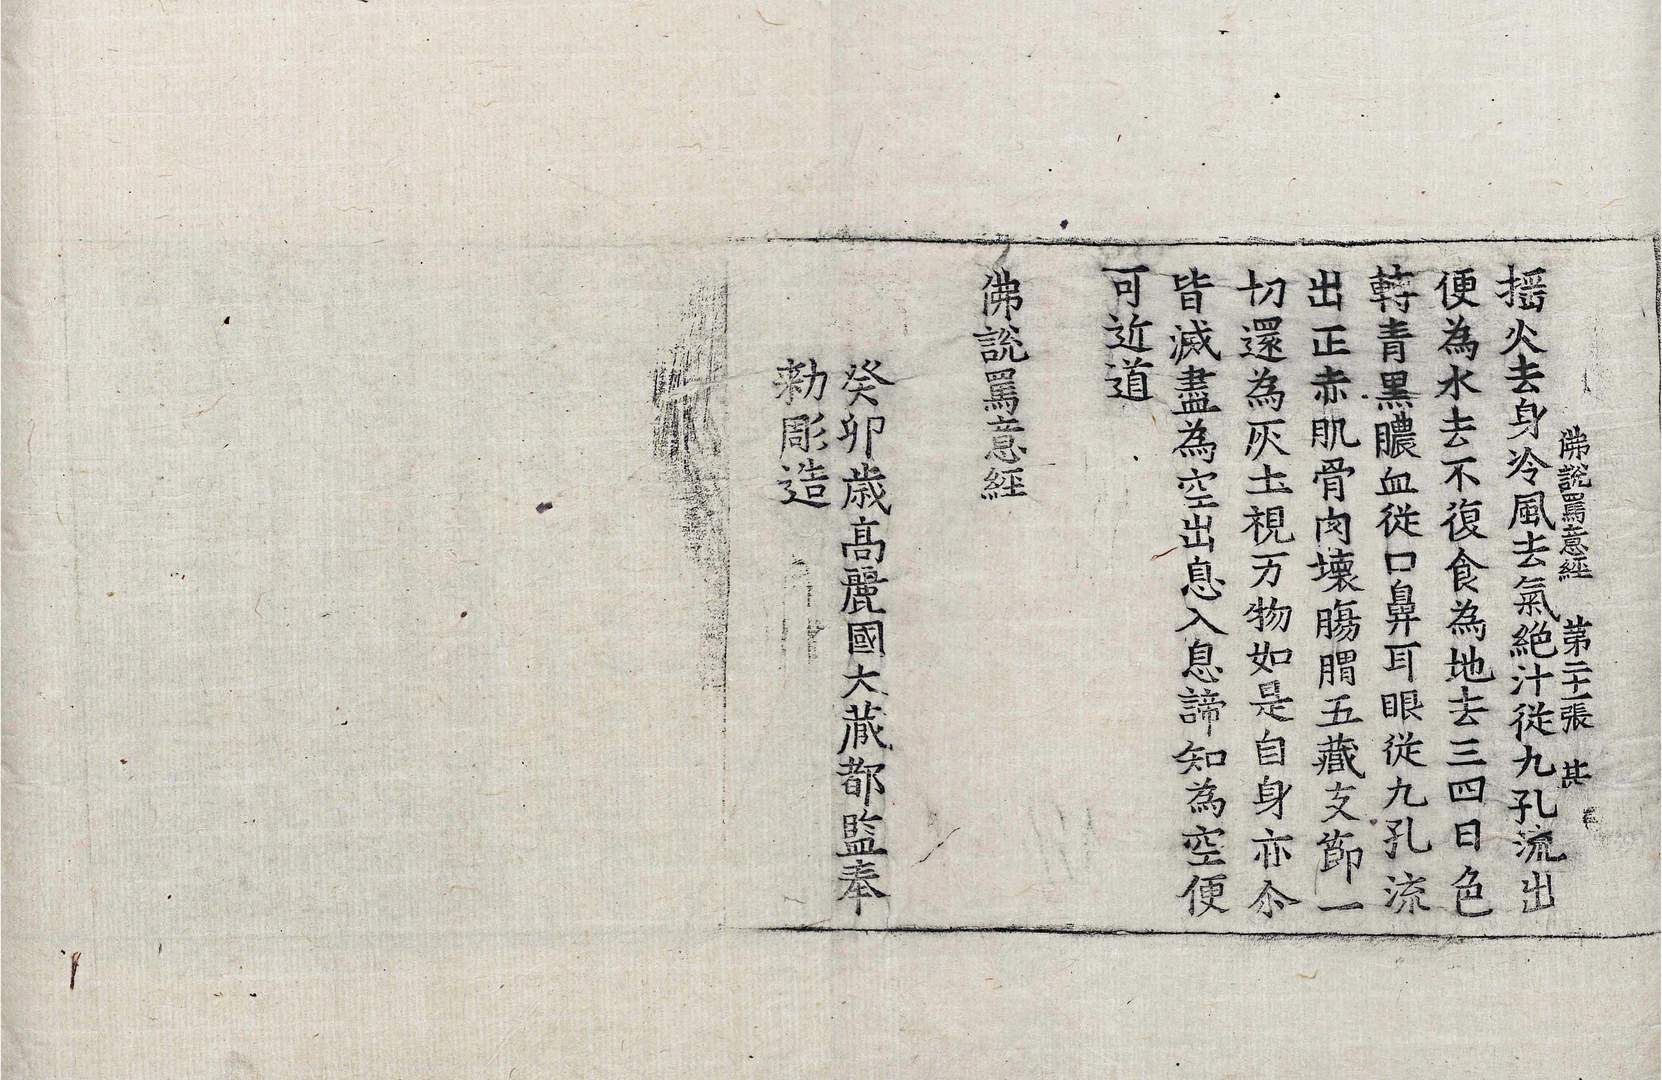 佛說罵意經 第二十一張 其
揺火去身冷風去氣絶汁從九孔流出
便為水去不復食為地去三四日色
轉青黒膿血從口鼻耳眼從九孔流
出正赤肌骨肉壞膓胃五藏支節一
切還為灰土視万物如是自身亦尒
皆滅盡為空出息入息諦知為空便
可近道
佛說罵意經
癸卯歳高麗國大藏都監奉
勑彫造